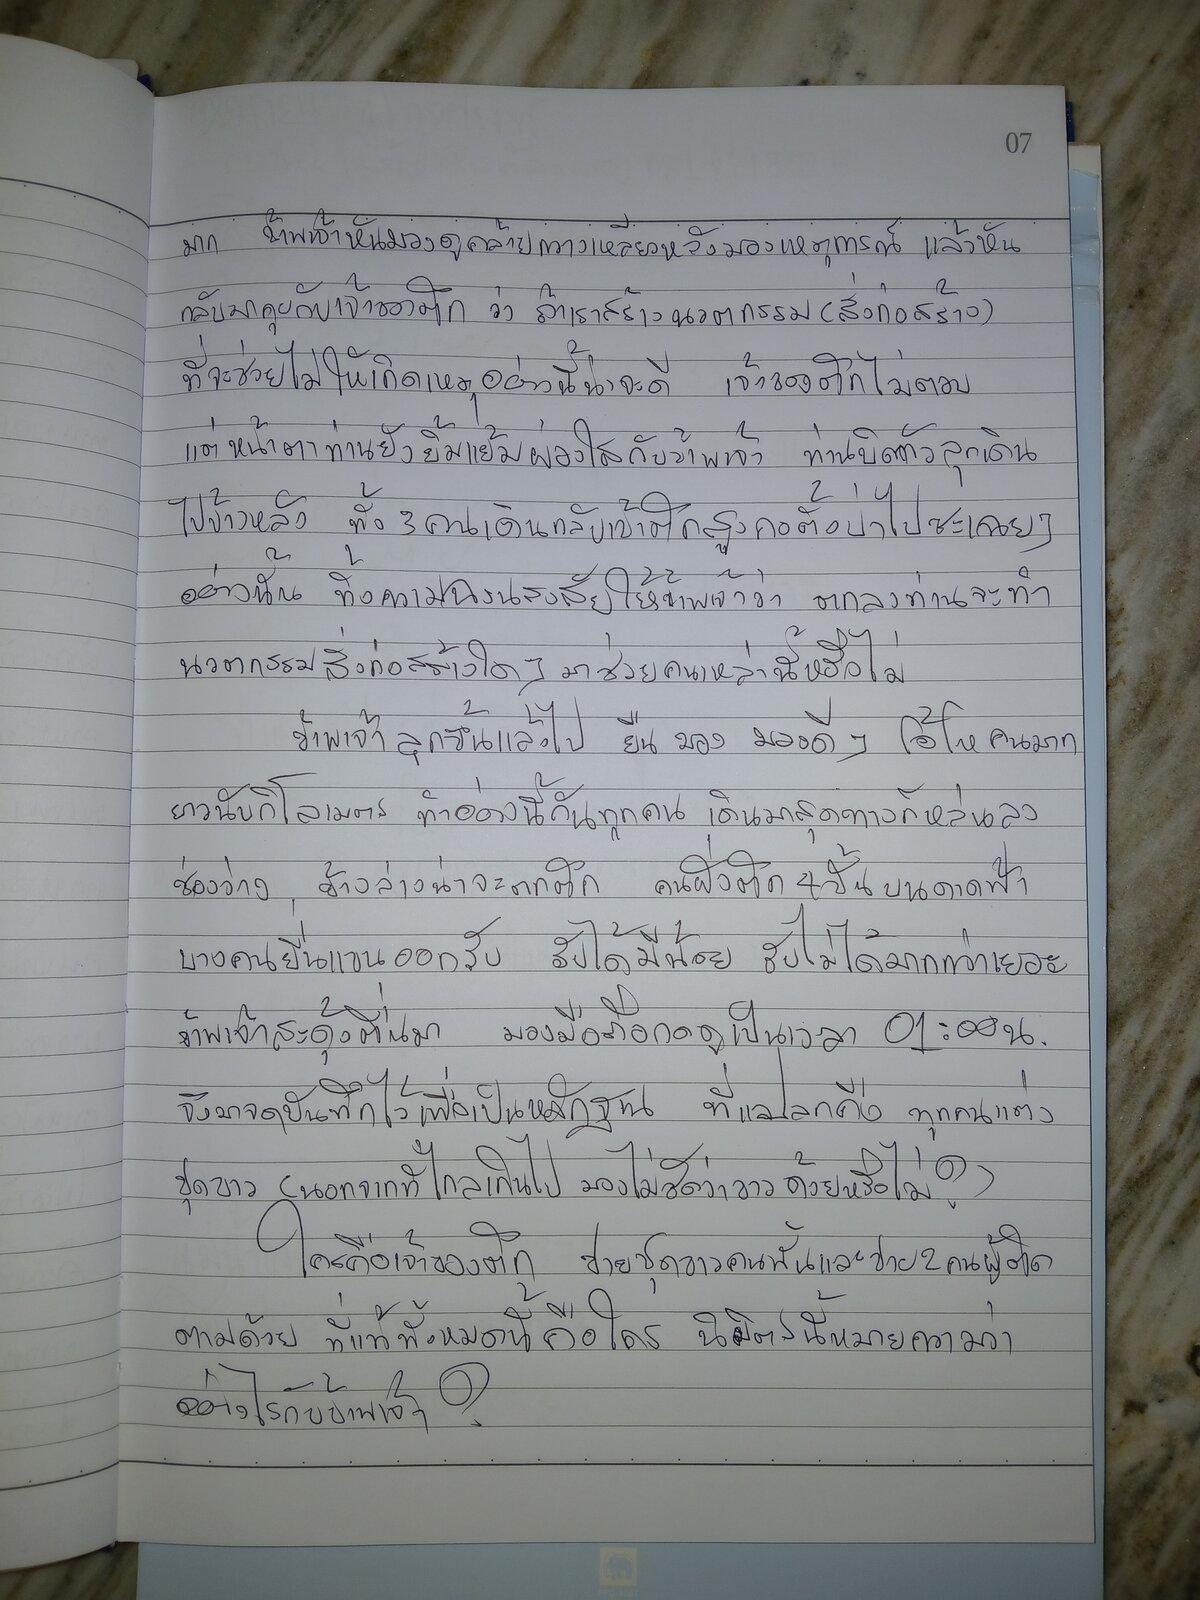 07
มาก ข้าพเจ้าหันมองดูคล้ายกวางเหลียวหลังมองเหตุการณ์ แล้วหัน
กลับมาคุยกับเจ้าของตึก ว่า ถ้าเราสร้างนวตกรรม (สิ่งก่อสร้าง)
ที่จะช่วยไม่ให้เกิดเหตุอย่างนี้น่าจะดี เจ้าของตึกไม่ตอบ
แต่หน้าตาท่านยังยิ้มแย้มผ่องใสกับข้าพเจ้า ท่านบิดตัวลุกเดิน
ไปข้างหลัง ทั้ง 3 คนเดินกลับเข้าตึกสูงคอตั้งบ่าไปซะเฉยๆ
อย่างนั้น ทิ้งความฉงนสงสัยให้ข้าพเจ้าว่า ตกลงท่านจะทำ
นวตกรรมสิ่งก่อสร้างใดๆ มาช่วยคนเหล่านี้หรือไม่
ข้าพเจ้าลุกขึ้นแล้วไป ยืน มอง มองดีๆ โอ้โห คนมาก
ยาวนับกิโลเมตร ทำอย่างนี้กันทุกคน เดินมาสุดทางก็หล่นลง
ช่องว่าง, ข้างล่างน่าจะตกตึก คนฝั่งตึก 4 ชั้นบนดาดฟ้า
บางคนยื่นแขนออกรับ รับได้มีน้อย รับไม่ได้มากกว่าเยอะ
ข้าพเจ้าสะดุ้งตื่นมา มองมือถือกดดูเป็นเวลา 01:00 น.
จึงมาจดบันทึกไว้เพื่อเป็นหลักฐาน ที่แปลกคือ ทุกคนแต่ง
ชุดขาว (นอกจากที่ไกลเกินไป มองไม่ชัดว่าขาวด้วยหรือไม่?)
ใครคือเจ้าของตึก ชายชุดขาวคนนั้นและชาย 2 คนผู้ติด
ตามด้วย ที่แท้ทั้งหมดนี้คือใคร นิมิตรนี้หมายความว่า
อย่างไรกับข้าพเจ้า ?